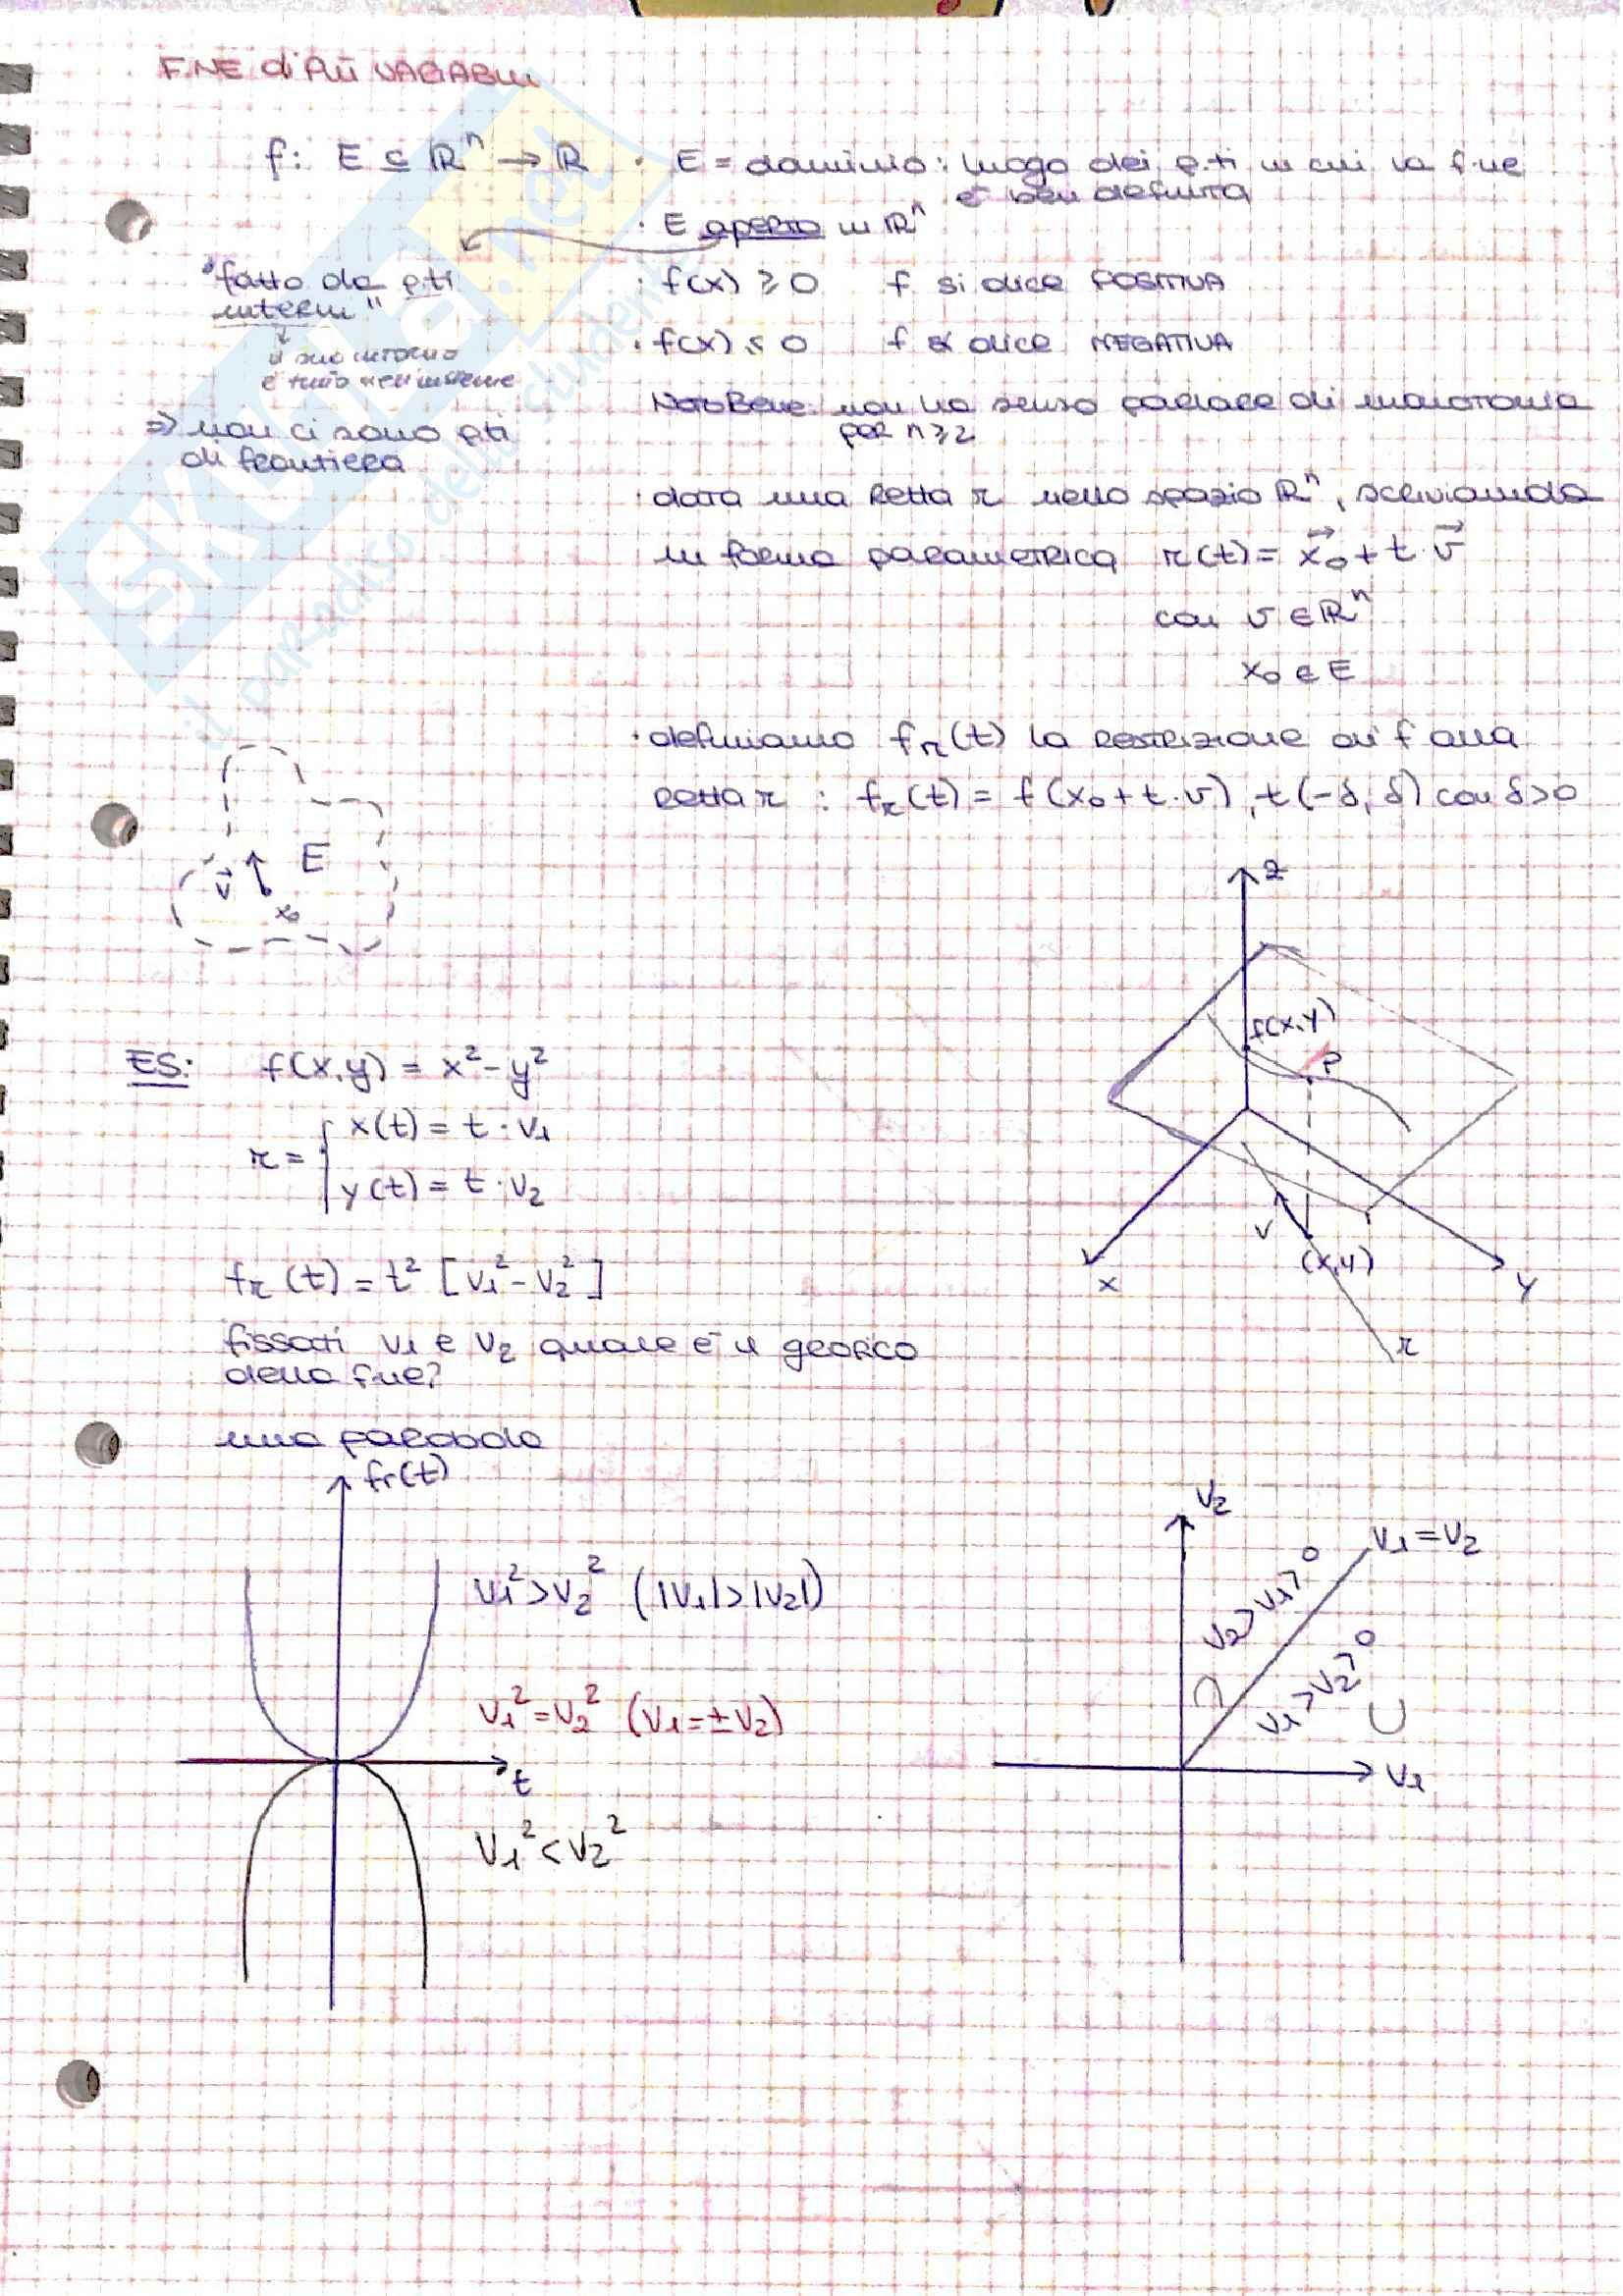 F.NE di PIÙ VARIABILI
f: E ⊆ ℝⁿ → ℝ
· E = dominio: luogo dei p.ti in cui la f.ne
è ben definita
· E aperto in ℝⁿ
"fatto da p.ti
interni"
↓
il suo intorno
è tutto nell'insieme
⇒ non ci sono p.ti
di frontiera
· f(x) ≥ 0 f si dice POSITIVA
· f(x) ≤ 0 f si dice NEGATIVA
Nota Bene: non ha senso parlare di monotonia
per n ≥ 2
· data una retta r nello spazio ℝⁿ, scrivendola
in forma parametrica r(t) = x⃗₀ + t · v⃗
con v ∈ ℝⁿ
x₀ ∈ E
· definiamo fᵣ(t) la restrizione di f alla
retta r : fᵣ(t) = f(x₀ + t · v), t (-δ, δ) con δ>0
v⃗ E
x₀
z
f(x,y)
P
v
(x,y)
x
y
r
ES: f(x,y) = x² - y²
r = { x(t) = t · v₁
y(t) = t · v₂
fᵣ(t) = t² [v₁² - v₂²]
fissati v₁ e v₂ quale è il grafico
della f.ne?
una parabola
fr(t)
v₁² > v₂² (|v₁| > |v₂|)
v₁² = v₂² (v₁ = ± v₂)
t
v₁² < v₂²
v₂
v₁ = v₂
v₂ > v₁ > 0
v₁ > v₂ > 0
v₁
SKUOLA.net
il paradiso dello studente